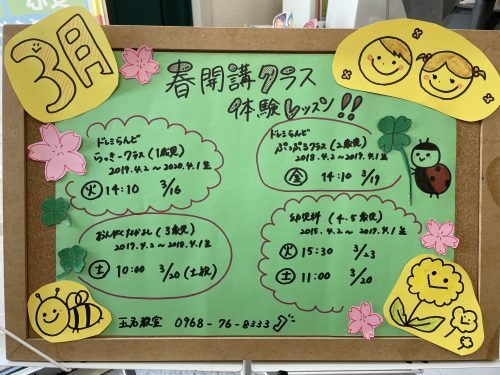 3月
春開講クラス
体験レッスン!!
ドレミらんど
らっきークラス(1歳児)
2019.4.2〜2020.4.1生
火 14:10 3/16
ドレミらんど
ぷっぷるクラス(2歳児)
2018.4.2〜2019.4.1生
金 14:10 3/19
おんがくなかよし(3歳児)
2017.4.2〜2018.4.1生
土 10:00 3/20(土祝)
幼児科(4・5歳児)
2015.4.2〜2017.4.1生
火 15:30 3/23
土 11:00 3/20
玉名教室 0968-76-8333